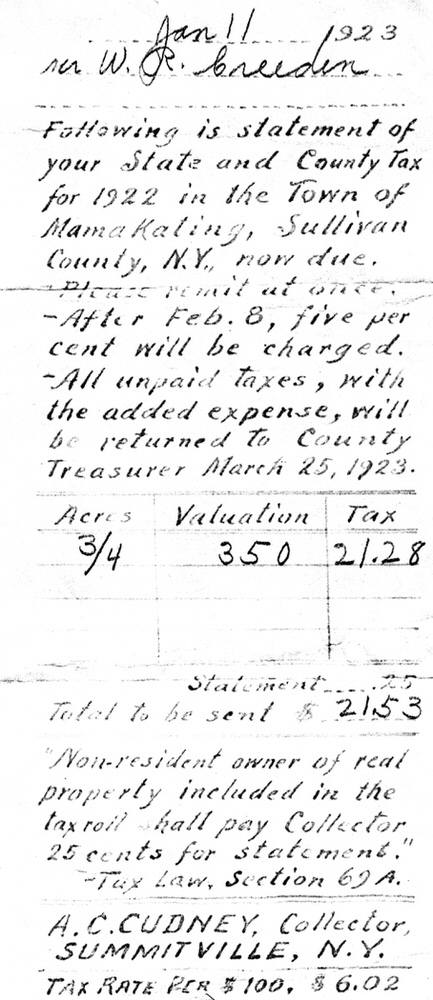 Jan 11 1923
W. R. Creeden
Following is statement of
your State and County Tax
for 1922 in the Town of
Mamakating, Sullivan
County, N.Y., now due.
-Please remit at once.
-After Feb. 8, five per
cent will be charged.
-All unpaid taxes, with
the added expense, will
be returned to County
Treasurer March 25, 1923.
Acres Valuation Tax
3/4 350 21.28
Statement .25
Total to be sent $ 21.53
"Non-resident owner of real
property included in the
tax roll shall pay Collector
25 cents for statement."
-Tax Law, Section 69 A.
A.C. CUDNEY, Collector,
SUMMITVILLE, N.Y.
TAX RATE PER $100, $6.02